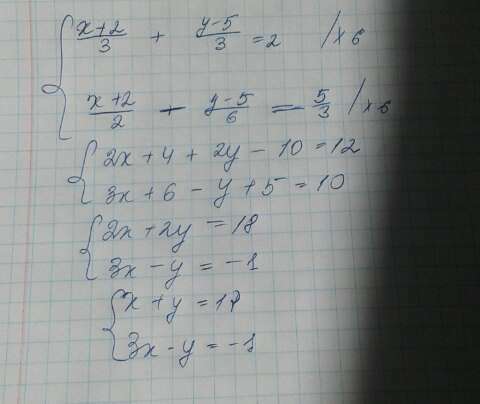 x+2/3 + y-5/3 = 2 /×6
x+2/2 - y-5/6 = 5/3 /×6
2x+4+2y-10=12
3x+6-y+5=10
2x+2y=18
3x-y=-1
x+y=
3x-y=-1